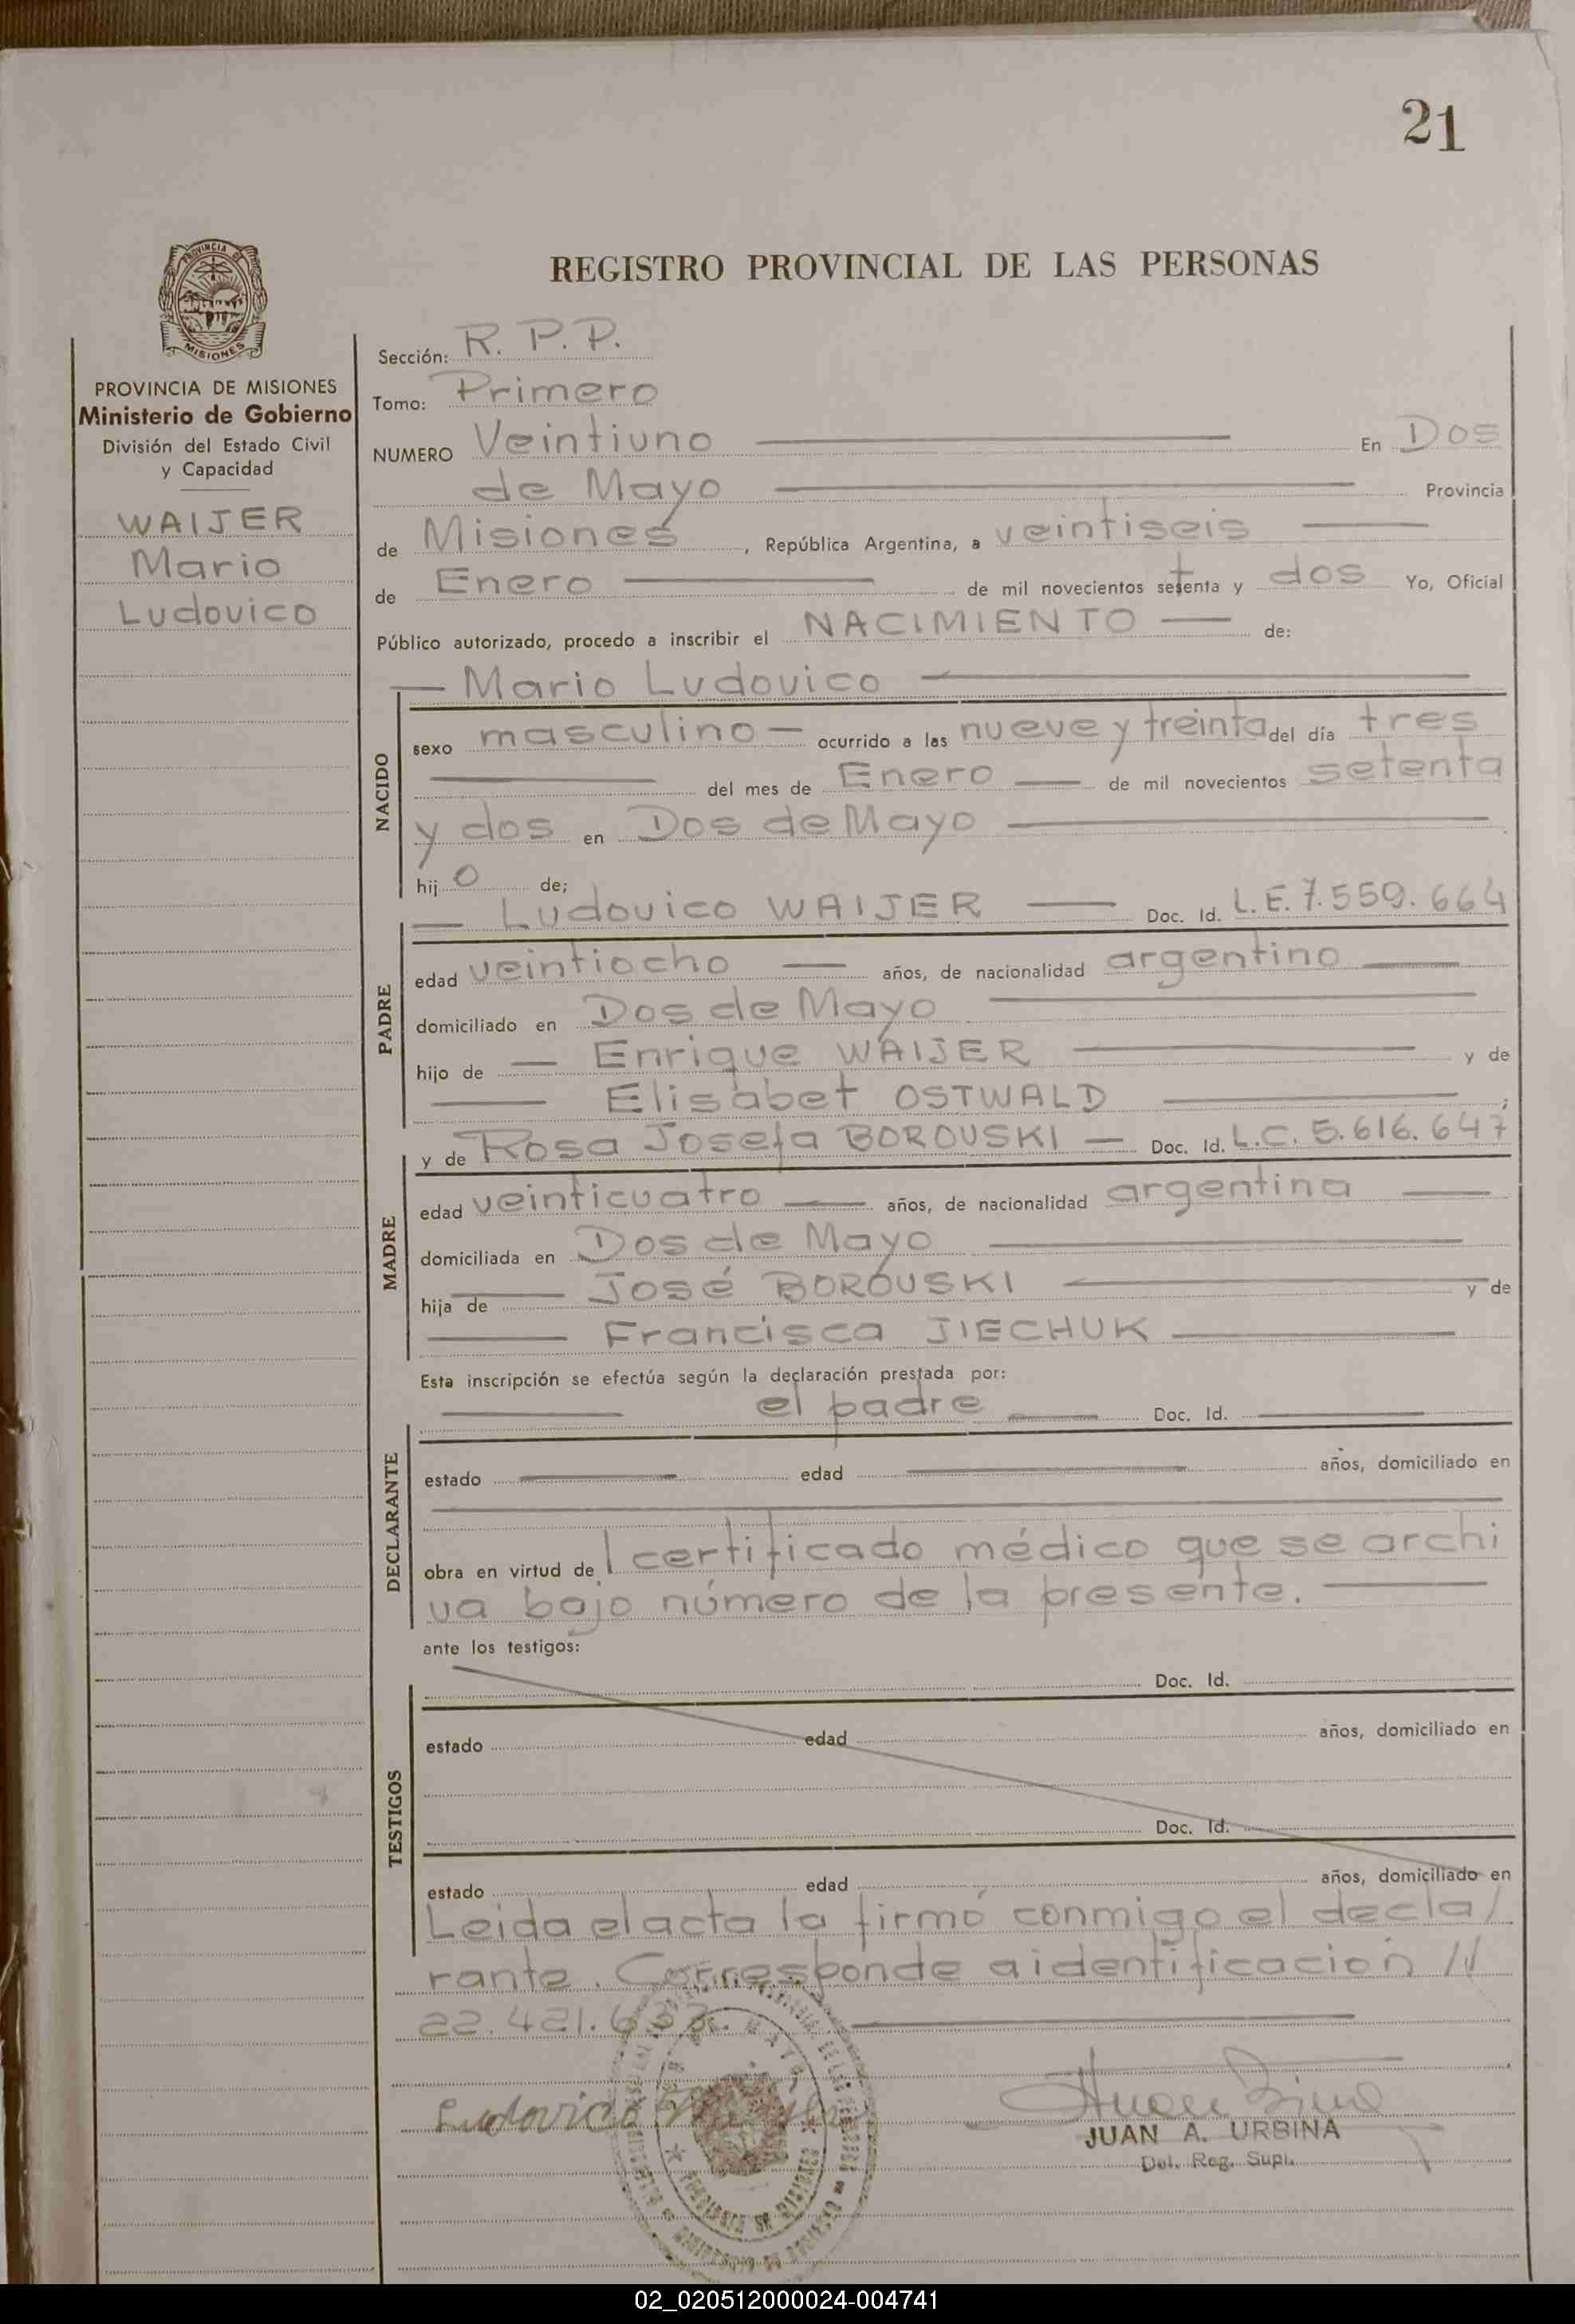 21
REGISTRO PROVINCIAL DE LAS PERSONAS
PROVINCIA DE MISIONES
Ministerio de Gobierno
División del Estado Civil
y Capacidad
WAIJER
Mario
Ludovico
Sección: R. P. P.
Tomo: Primero
NUMERO Veintiuno En Dos
de Mayo Provincia
de Misiones, República Argentina, a veintiseis
de Enero de mil novecientos setenta y dos Yo, Oficial
Público autorizado, procedo a inscribir el NACIMIENTO de:
Mario Ludovico
NACIDO
sexo masculino ocurrido a las nueve y treinta del día tres
del mes de Enero de mil novecientos setenta
y dos en Dos de Mayo
hijo de;
Ludovico WAIJER Doc. Id. L.E. 7.559.664
PADRE
edad veintiocho años, de nacionalidad argentino
domiciliado en Dos de Mayo
hijo de Enrique WAIJER y de
Elisabet OSTWALD ;
y de Rosa Josefa BOROUSKI Doc. Id. L.C. 5.616.647
MADRE
edad veinticuatro años, de nacionalidad argentina
domiciliada en Dos de Mayo
hija de José BOROUSKI y de
Francisca JIECHUK
Esta inscripción se efectúa según la declaración prestada por:
el padre Doc. Id.
DECLARANTE
estado edad años, domiciliado en
obra en virtud de l certificado médico que se archi
va bajo número de la presente.
ante los testigos:
Doc. Id.
TESTIGOS
estado edad años, domiciliado en
Doc. Id.
estado edad años, domiciliado en
Leida el acta la firmó conmigo el decla/
rante. Corresponde a identificación //
22.421.633.
Ludovico
JUAN A. URBINA
Del. Reg. Supl.
02_020512000024-004741